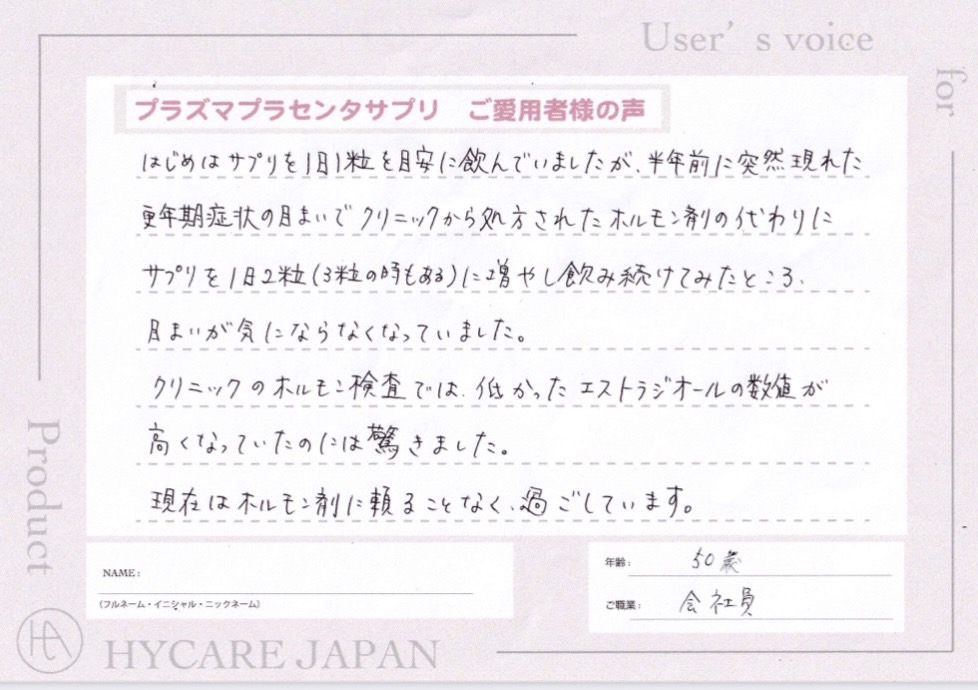 User's voice
for
プラズマプラセンタサプリ　ご愛用者様の声
はじめはサプリを1日1粒を目安に飲んでいましたが、半年前に突然現れた
更年期症状の目まいでクリニックから処方されたホルモン剤の代わりに
サプリを1日2粒(3粒の時もある)に増やし飲み続けてみたところ、
目まいが気にならなくなっていました。
クリニックのホルモン検査では、低かったエストラジオールの数値が
高くなっていたのには驚きました。
現在はホルモン剤に頼ることなく、過ごしています。
NAME:
(フルネーム・イニシャル・ニックネーム)
年齢: 50歳
ご職業: 会社員
Product
HA
HYCARE JAPAN